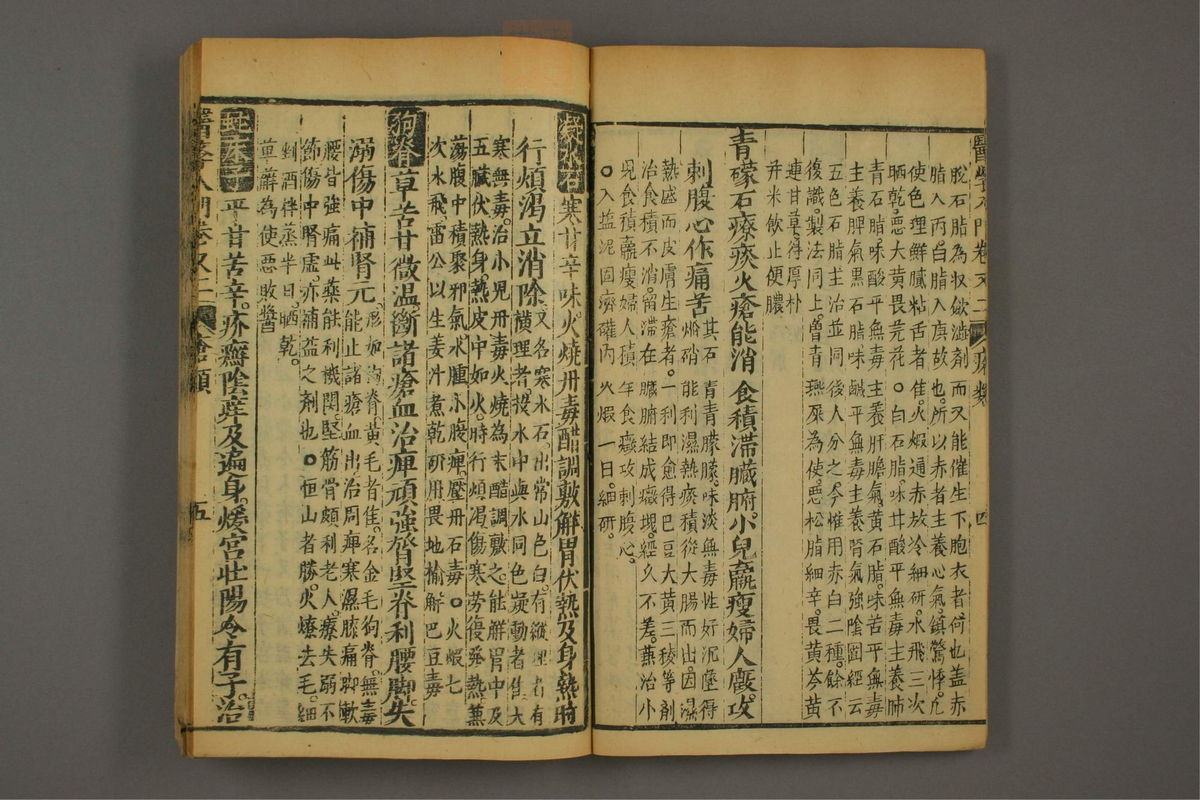 醫學入門卷又二 瘡類 四
脫石脂為収歛澁劑而又能催生下胞衣者何也盖赤
脂入丙白脂入庚故也所以赤者主養心氣鎮驚悸凢
使色理鮮膩粘舌者佳火煆通赤放冷細研水飛三次
晒乾惡大黄畏芫花○白石脂味甘酸平無毒主養肺
青石脂味酸平無毒主養肝膽氣黄石脂味苦平無毒
主養脾氣黒石脂味鹹平無毒主養腎氣強陰固經云
五色石脂主治並同後人分之今惟用赤白二種餘不
復識製法同上曽青燕屎為使惡松脂細辛畏黄芩黄
連甘草得厚朴
并米飲止便膿
青礞石療痰火瘡能消食積滯臟腑小兒羸瘦婦人癥攻
刺腹心作痛苦
其石青青朦朦味淡無毒性好沉墜得
焰硝能利濕熱痰積從大腸而出因濕
熱盛而皮膚生瘡者一利即愈得巴豆大黄三稜等劑
治食積不消留滯在臟腑結成癥塊經久不差兼治小
兒食積羸瘦婦人積年食癥攻刺腹心
○入盐泥固濟礶内火煆一日細研
凝水石寒甘辛味火燒丹毒醋調敷解胃伏熱及身熱時
行煩渴立消除
又名寒水石出常山色白有縱理者有
横理者投水中與水同色凝動者佳大
寒無毒治小児丹毒火燒為末醋調敷之能解胃中及
五臓伏熱身熱皮中如火時行煩渴傷寒劳復發熱兼
蕩腹中積聚邪氣水腫小腹痺壓丹石毒○火煆七
次水飛雷公以生姜汁煮乾研用畏地榆解巴豆毒
狗脊草苦甘微温斷諸瘡血治痺頑強膂堅脊利腰脚失
溺傷中補腎元
形如狗脊黄毛者佳名金毛狗脊無毒
能止諸瘡血出治周痺寒濕膝痛脚軟
腰背強痛此藥能利機関堅筋骨頗利老人療失溺不
節傷中腎虛亦補益之劑也○恒山者勝火燎去毛細
剉酒拌蒸半日晒乾
萆薢為使惡敗醬
平甘苦辛疥癬陰痒及遍身煖宮壮陽令有子治
醫學入門卷又二 瘡類 五